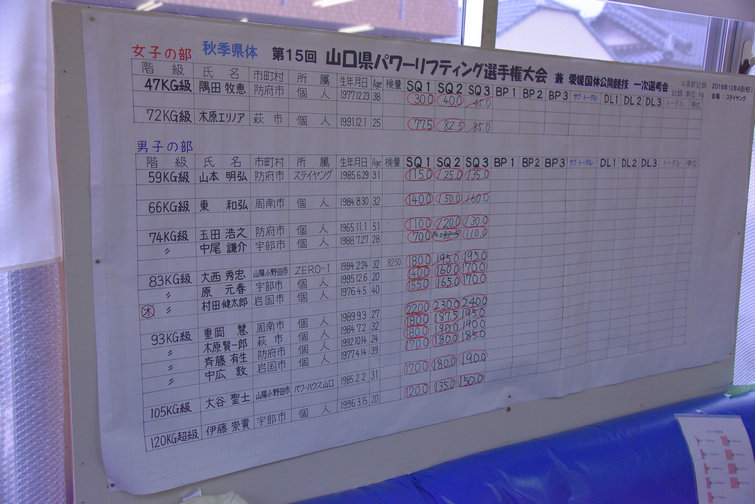 女子の部 秋季県体 第15回 山口県パワーリフティング選手権大会 兼 愛媛国体公開競技 一次選考会 2016年12月4日(日)
会場: ステイヤング
階級 氏名 市町村 所属 生年月日 Age 検量 SQ1 SQ2 SQ3 BP1 BP2 BP3 サブ・トータル DL1 DL2 DL3 トータル 順位
47KG級 隅田 牧恵 防府市 個人 1977.12.23 38 30.0 40.0 45.0
72KG級 木原エリノア 萩市 個人 1991.12.1 25 77.5 82.5 85.0
男子の部
階級 氏名 市町村 所属 生年月日 Age 検量 SQ1 SQ2 SQ3 BP1 BP2 BP3 サブ・トータル DL1 DL2 DL3 トータル 順位
59KG級 山本 明弘 防府市 ステイヤング 1985.6.29 31 115.0 125.0 135.0
66KG級 東 和弘 周南市 個人 1984.8.30 32 140.0 150.0 160.0
74KG級 玉田 浩之 防府市 個人 1965.11.1 51 110.0 120.0 130.0
〃 中尾 謙介 宇部市 個人 1988.7.27 28 70.0 110.0
83KG級 大西 秀忠 山陽小野田市 ZERO-1 1984.2.24 32 82.50 180.0 195.0 195.0
〃 原 元春 宇部市 個人 1995.12.6 20 140.0 160.0 170.0
〃 村田 健太郎 岩国市 個人 1976.4.5 40 155.0 165.0 170.0
93KG級 重岡 慧 周南市 個人 1989.9.3 27 220.0 230.0 240.0
〃 木原 賢一郎 萩市 個人 1984.7.2 32 180.0 187.5 195.0
〃 斉藤 有生 防府市 個人 1992.10.14 24 180.0 190.0 190.0
〃 中広 敦 岩国市 個人 1977.4.14 39 170.0 180.0 185.0
105KG級 大谷 聖士 山陽小野田市 パワーハウス山口 1985.2.2 31 170.0 180.0 190.0
120KG超級 伊藤 崇貴 宇部市 個人 1996.3.15 20 120.0 135.0 150.0